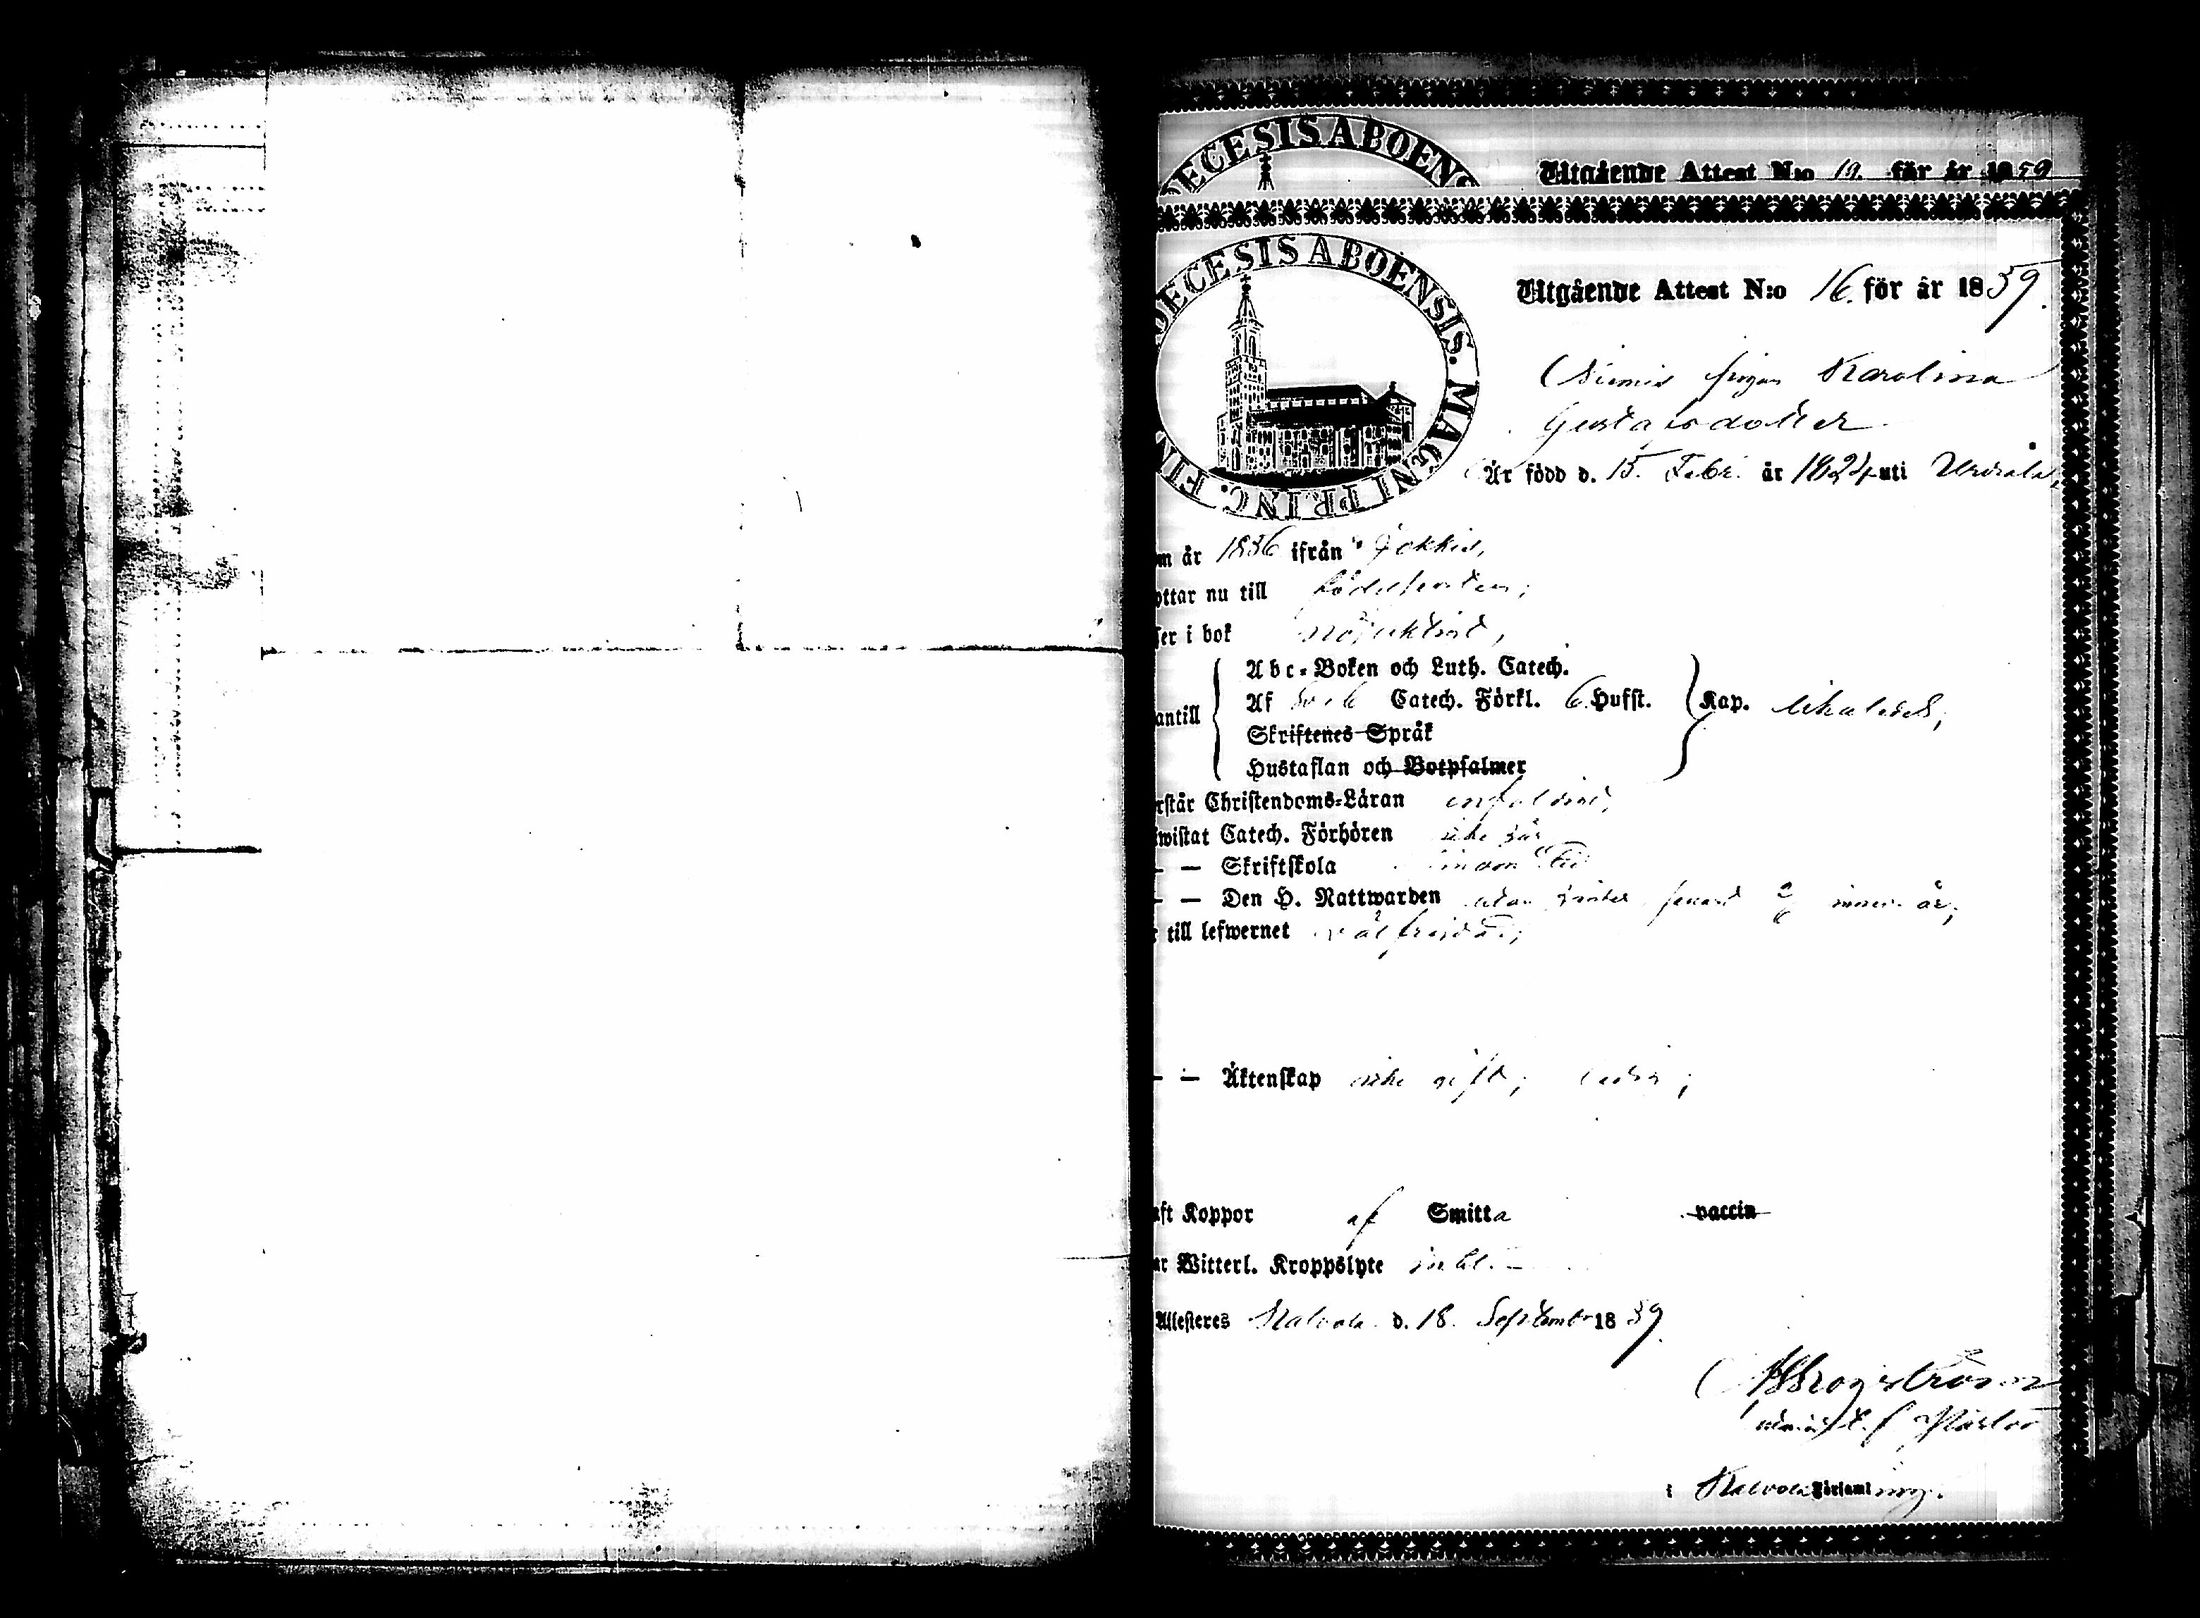 DECESIS ABOENS
Utgående Attest N:o 19. för år 1859
DECESIS ABOENSIS. MAGNI PRINC. FIN
Utgående Attest N:o 16. för år 1859.
pigan Karolina
Gustafsdotter
Är född d. 15. Febr. år 1824 uti Urdiala,
om år 1836 ifrån Jokkis,
ottar nu till födelseorten;
ser i bok nöjaktigt,
Abc-Boken och Luth. Catech.
antill Af Catech. Förkl. 6. Hufst. Kap.
Skriftenes Språk
Hustaflan och Botpsalmer
rstår Christendoms-Läran enfaldigt,
iwistat Catech. Förhören
— — Skriftskola
— — Den H. Nattwarden utan hinder, senast innew. år;
r till lefwernet wälfrejdad;
— — Äktenskap icke gift; ledig;
aft Koppor af Smitta vaccin
ar Witterl. Kroppslyte
Attesteres Kalvola d. 18. September 1859.
Pastor
i Kalvola Församling.